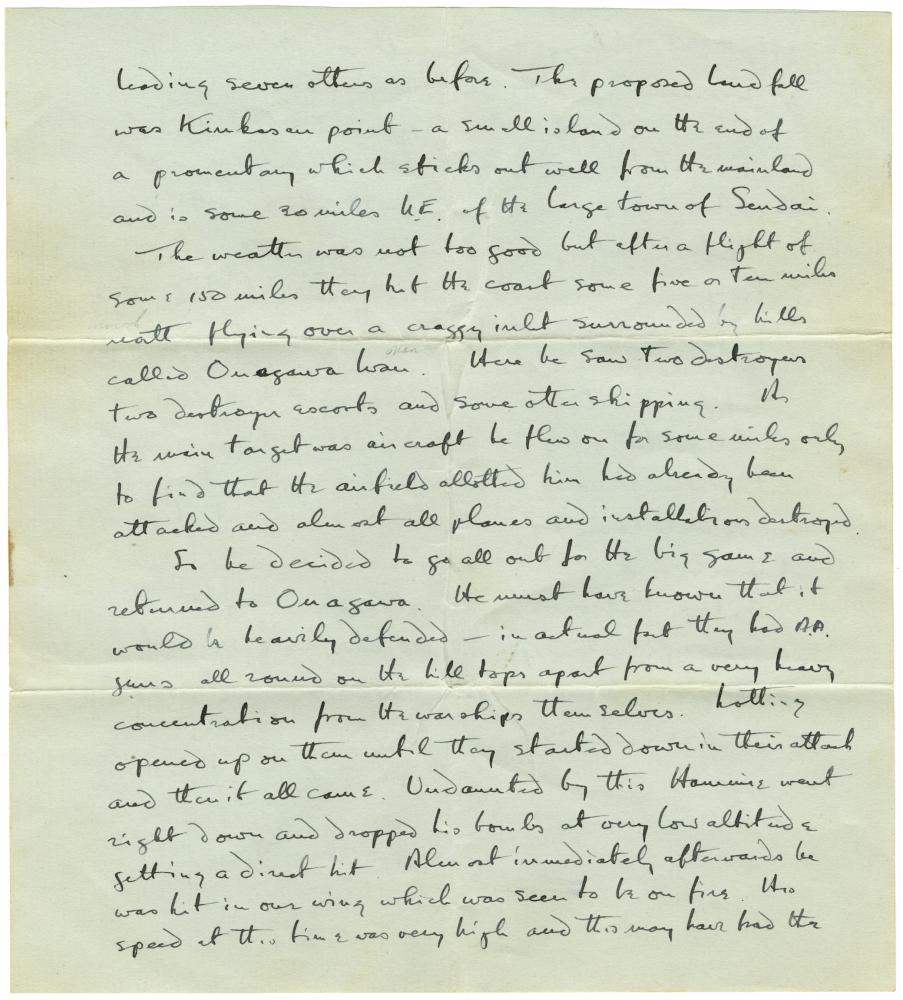 leading seven others as before. The proposed land fall
was Kinkasan point – a small island on the end of
a promentary which sticks out well from the mainland
and is some 30 miles N.E. of the large town of Sendai.
The weather was not too good but after a flight of
some 150 miles they hit the coast some five or ten miles
north flying over a craggy inlet surrounded by hills
called Onagawa Wan. Here he saw two destroyers
two destroyer escorts and some other shipping. As
the main target was aircraft he flew on for some miles only
to find that the airfield allotted him had already been
attacked and almost all planes and installations destroyed
So he decided to go all out for the big game and
returned to Onagawa. He must have known that it
would be heavily defended – in actual fact they had A.A.
guns all round on the hill tops apart from a very heavy
concentration from the warships themselves. Nothing
opened up on them until they started down in their attack
and then it all came. Undaunted by this Hammie went
right down and dropped his bombs at very low altitude
getting a direct hit Almost immediately afterwards he
was hit in one wing which was seen to be on fire. His
speed at this time was very high and this may have had the